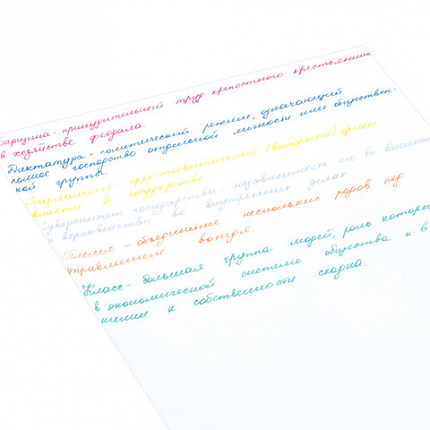 Барщина - принудительный труд крепостного крестьянина
в хозяйстве феодала.
Диктатура - политический режим, означающий
полное господство отдельной личности или обществен-
ной группы.
Парламент - представительский (выборный) орган
власти в государстве
Суверенитет государства - независимость его во внешних
и верховенство во внутренних делах
Племя - объединение нескольких родов под
управлением вождя.
Класс - большая группа людей, роль которых
в экономической системе общества и в
шении к собственности сходна.